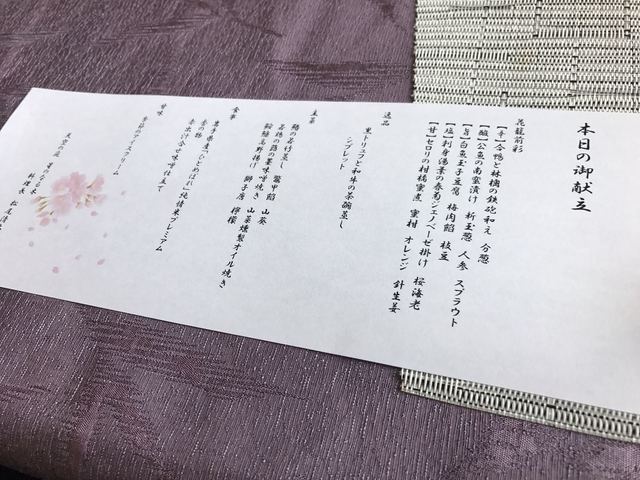 本日の御献立
花籠前彩
【辛】合鴨と林檎の鉄砲和え 分葱
【酸】公魚の南蛮漬け 新玉葱 人参 スプラウト
【旨】白魚玉子豆腐 梅肉餡 枝豆
【塩】刺身湯葉の春菊ジェノベーゼ掛け 桜海老
【甘】セロリの柑橘蜜煮 蜜柑 オレンジ 針生姜
逸品
黒トリュフと和牛の茶碗蒸し
シブレット
主菜
鰆の若竹蒸し 鼈甲餡 山葵
若鶏の蕗の薹味噌焼き 山菜燻製オイル焼き
鮟鱇高野揚げ 獅子唐 檸檬
食事
岩手県産「ひとめぼれ」純情米プレミアム
香の物
赤出汁合せ味噌仕立て
甘味
季節のアイスクリーム
天空の庭 星のなる木
料理長